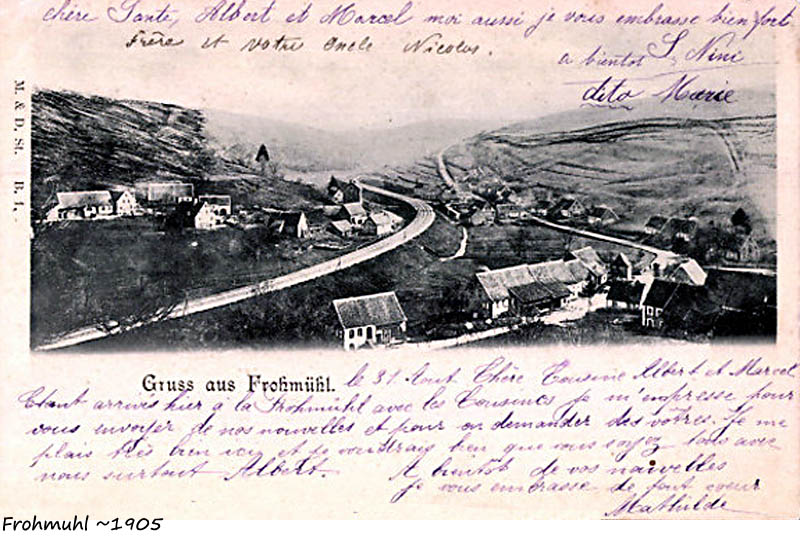 chère Tante, Albert et Marcel moi aussi je vous embrasse bien fort
Frère et votre Oncle Nicolas.
a bientot S. Nini
dito Marie
M. & D. St. B. 1.
Gruss aus Frohmühl.
le 31 Aout Chère Cousine Albert et Marcel
Etant arrivés hier à la Frohmühl avec les Cousines je m'empresse pour
vous envoyer de nos nouvelles et pour en demander des vôtres. Je me
plais très bien ici et je voudrais bien que vous soyez tous avec
nous surtout Albert. A bientot de vos naivelles
je vous embrasse de tout coeur
Mathilde
Frohmuhl ~1905